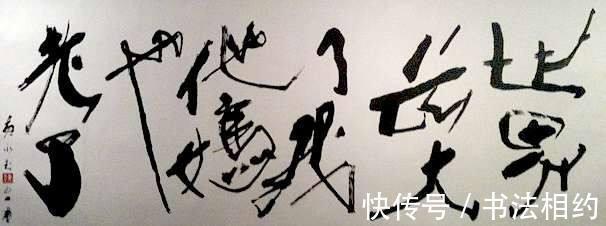 世界
大
了我
他媽
也
老了
快传号 / 书法相约